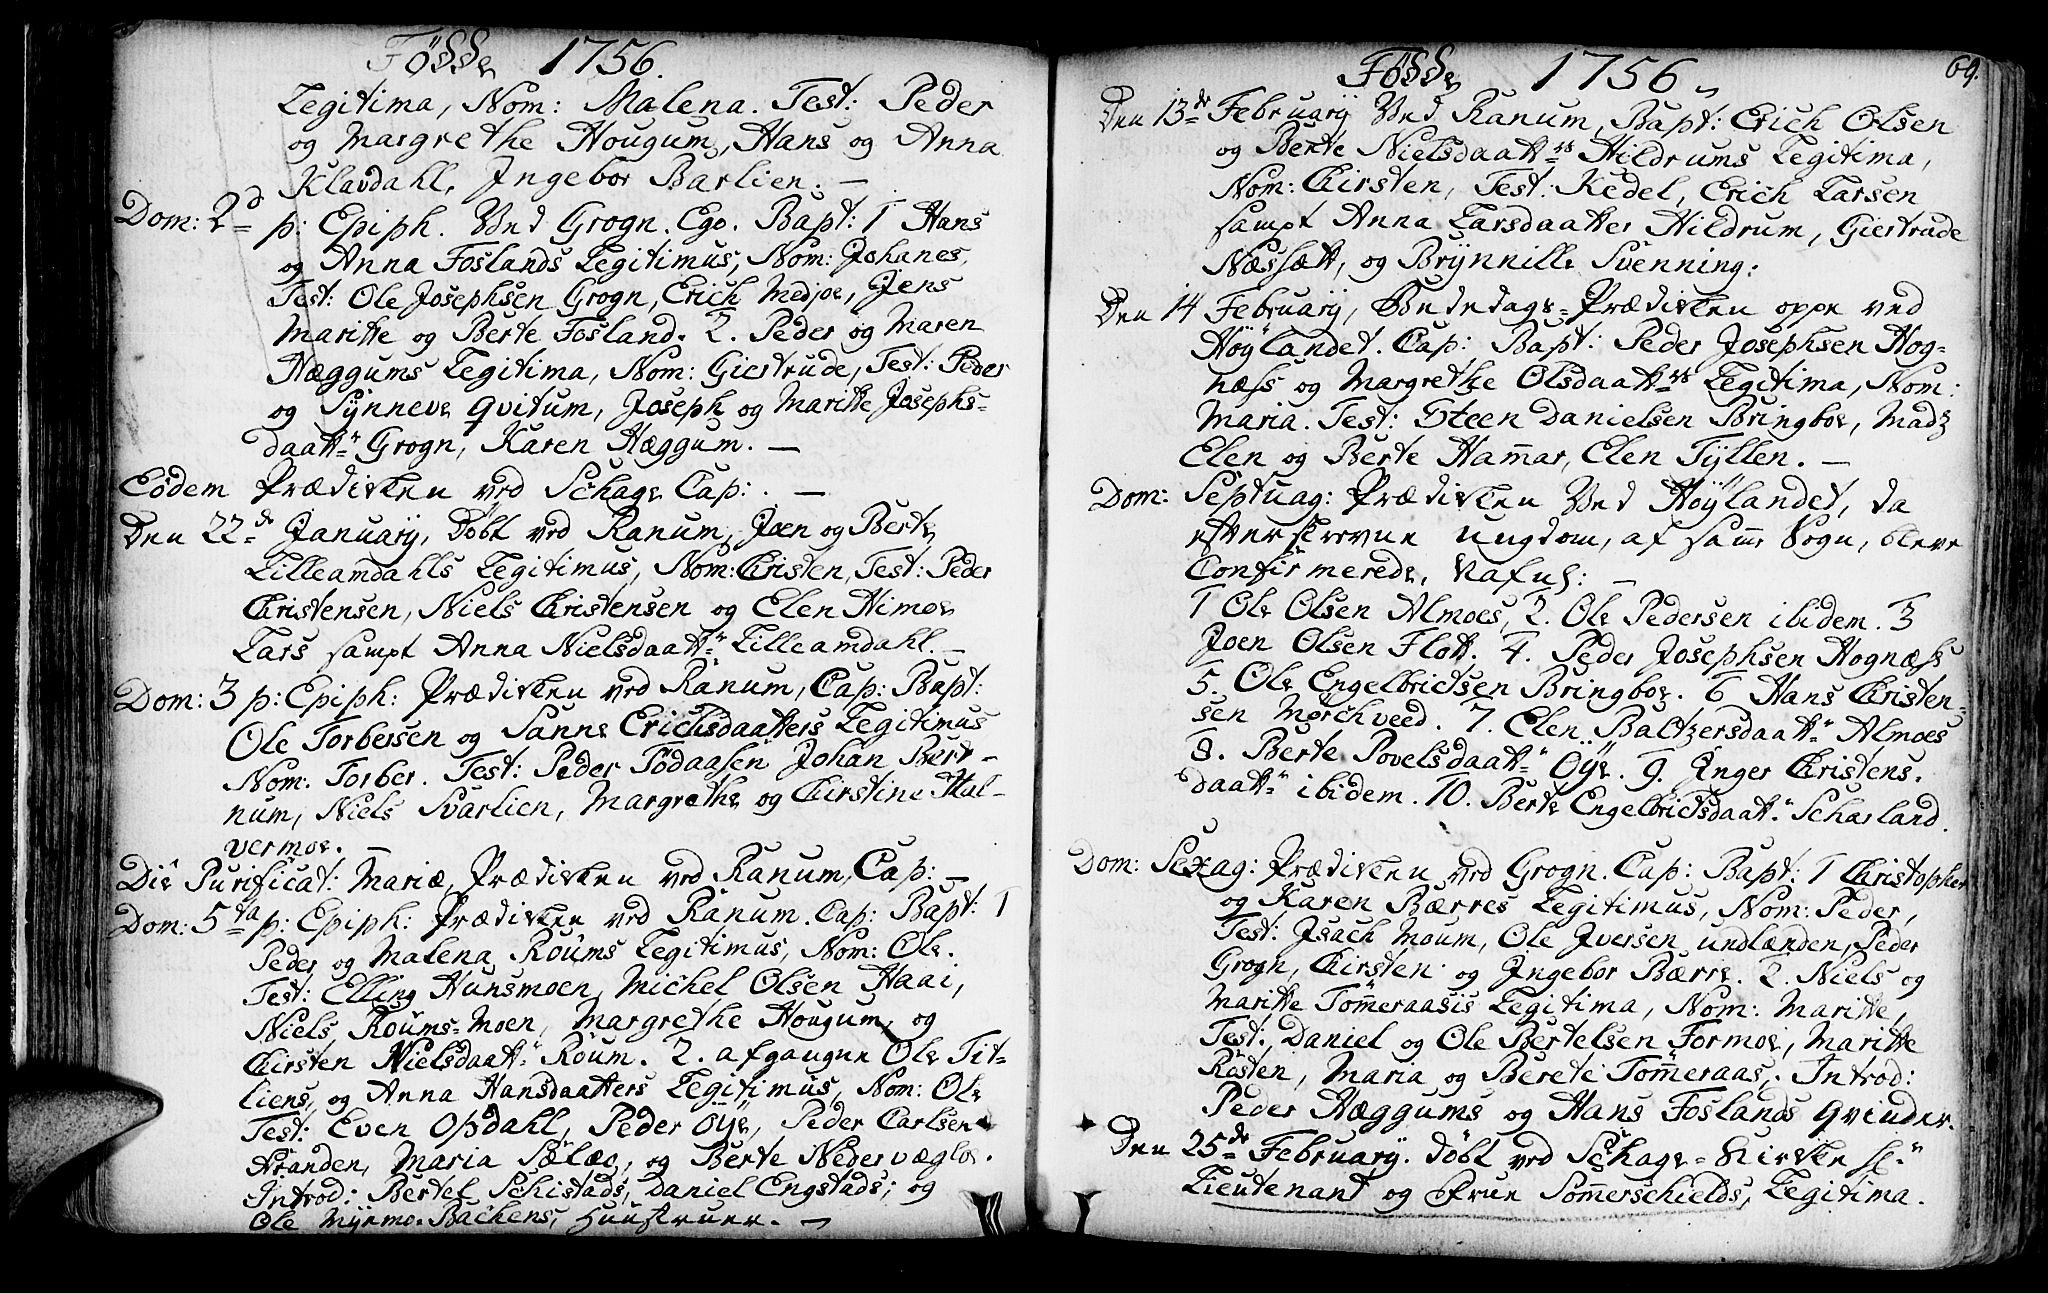 Fødde 1756.
Legitima, Nom: Malena. Test: Peder
og Margrethe Hougum, Hans og Anna
Klavdahl, Ingebor Barlien. —
Dom: 2d p: Epiph. Ved Grogn. Ego. Bapt: 1 Hans
og Anna Foslands Legitimus, Nom: Johanes,
Test: Ole Josephsen Grogn, Erich Medjoe, Jens
Maritte og Berte Fosland. 2. Peder og Maren
Hæggums Legitima, Nom: Giertrude, Test: Peder
og Synneve Qvitum, Joseph og Maritte Josephs-
daatt" Grogn, Karen Hæggum. —
Eodem Prædicken ved Schage Cap: . —
Den 22de Januarij, Døbt ved Ranum, Joen og Berte
Lilleamdahls Legitimus, Nom: Christen, Test: Peder
Christensen, Niels Christensen og Elen Himoe
Lars sampt Anna Nielsdaatt" Lilleamdahl. —
Dom: 3 p: Epiph: Prædicken ved Ranum, Cap: Bapt:
Ole Torbersen og Sanne Erichsdaatters Legitimus
Nom: Torber. Test: Peder Födaasen Johan Bert-
num, Niels Svarlien, Margrethe og Chirstine Hal-
vermoe. —
Die Purificat: Mariæ, Prædicken ved Ranum, Cap: —
Dom: 5ta p: Epiph: Prædicken ved Ranum. Cap: Bapt: 1
Peder og Malena Roúms Legitimus, Nom: Ole.
Test: Elling Hunsmoen, Michel Olsen Haai,
Niels Roúms-Moen, Margrethe Hougum, og
Chirsten Nielsdaatt" Roúm. 2. afgangne Ole Tit-
liens, og Anna Hansdaatters Legitimus, Nom: Ole
Test: Even Opdahl, Peder Öye, Peder Carlsen
Aranden, Maria Sælæg, og Berte Nedervægloe.
Introd: Bertel Schistads, Daniel Engstads; og
Ole Myrmo-Bachens, Huustruer. —
Fødde 1756.
69.
Den 13de Februarij Ved Ranum, Bapt: Erich Olsen
og Berte Nielsdaattrs Hildrums Legitima,
Nom: Chirsten, Test: Kedel, Erich Larsen
sampt Anna Larsdaatter Hildrum, Giertrude
Næssætt, og Brynnille Svenning:
Den 14 Februarij, Bededags-Prædicken oppe ved
Höylandet. Cap: Bapt: Peder Josephsen Hog-
næss og Margrethe Olsdaattrs Legitima, Nom:
Maria. Test: Steen Danielsen Bringboe, Madz
Elen og Berte Hammar, Elen Tyllen. —
Dom: Septuag: Prædicken Ved Höylandet, da
efterskrevne Ungdom, af samme Sogn, bleve
Confirmerede, Nafnl: —
1 Ole Olsen Almoes, 2. Ole Pedersen ibidem. 3
Joen Olsen Flott. 4. Peder Josephsen Hognæss
5. Ole Engelbrictsen Bringboe. 6 Hans Christen-
sen Morchveed. 7. Elen Baltzersdaatt" Almoes
8. Berte Povelsdaatt" Öye. 9. Inger Christens-
daatt" ibidem. 10. Berte Engelbrictsdaatt" Scharland.
Dom: Sexag: Prædicken ved Grogn. Cap: Bapt: 1 Christopher
og Karen Bærres Legitimus, Nom: Peder,
Test: Isach Moum, Ole Iversen undlænden, Peder
Grogn, Chirsten og Ingebor Bærre. 2. Niels og
Maritte Tömmeraasis Legitima, Nom: Maritte,
Test: Daniel og Ole Bertelsen Formoe, Maritte
Rösten, Maria og Berete Tömmeraas. Introd:
Peder Hæggums og Hans Foslands Qvinder.
Den 25de Februarij. Döbt ved Schage-Kircke Sr"
Lieutenant og Frue Sommerschields, Legitima.